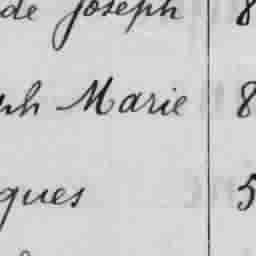 de Joseph 8
ph Marie 8
ques 5